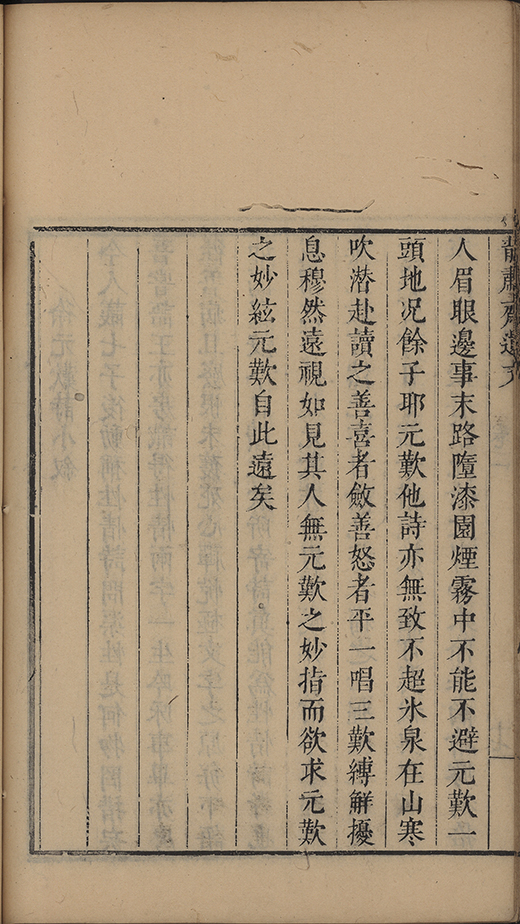 人眉眼邊事末路墮漆園煙霧中不能不避元歎一
頭地况餘子耶元歎他詩亦無致不超氷泉在山寒
吹潜赴讀之善喜者斂善怒者平一唱三歎縛解擾
息穆然遠視如見其人無元歎之妙指而欲求元歎
之妙絃元歎自此遠矣